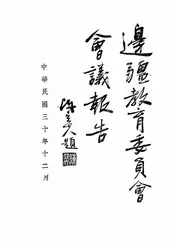 邊疆教育委員會
會議報告
陳立夫題
中華民國三十年十二月